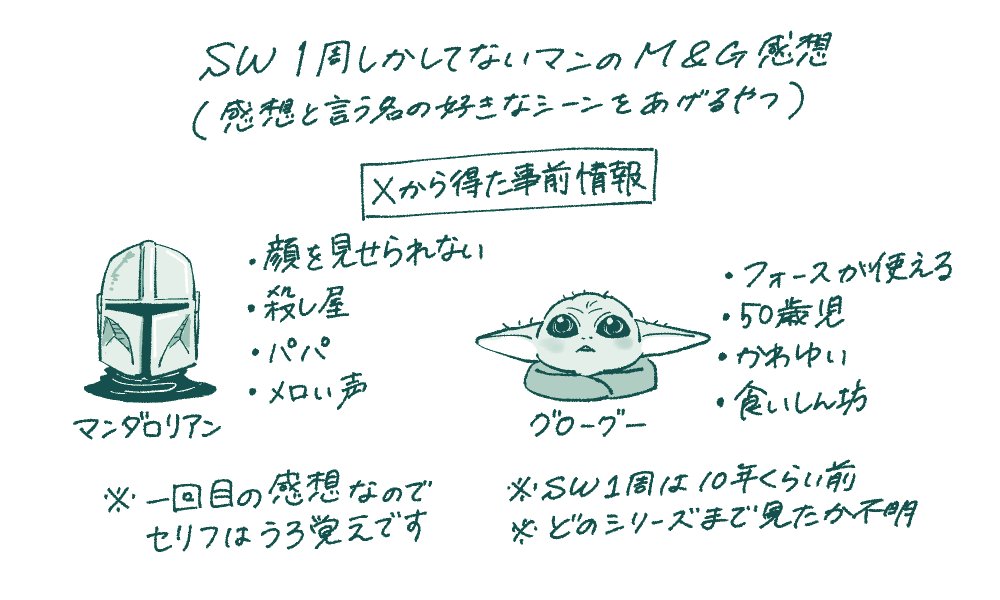 SW1周しかしてないマンのM&G感想
(感想と言う名の好きなシーンをあげるやつ)
Xから得た事前情報
・顔を見せられない
・殺し屋
・パパ
・メロい声
マンダロリアン
・フォースが使える
・50歳児
・かわゆい
・食いしん坊
グローグー
※一回目の感想なので
セリフはうろ覚えです
※SW1周は10年くらい前
※どのシリーズまで見たか不明